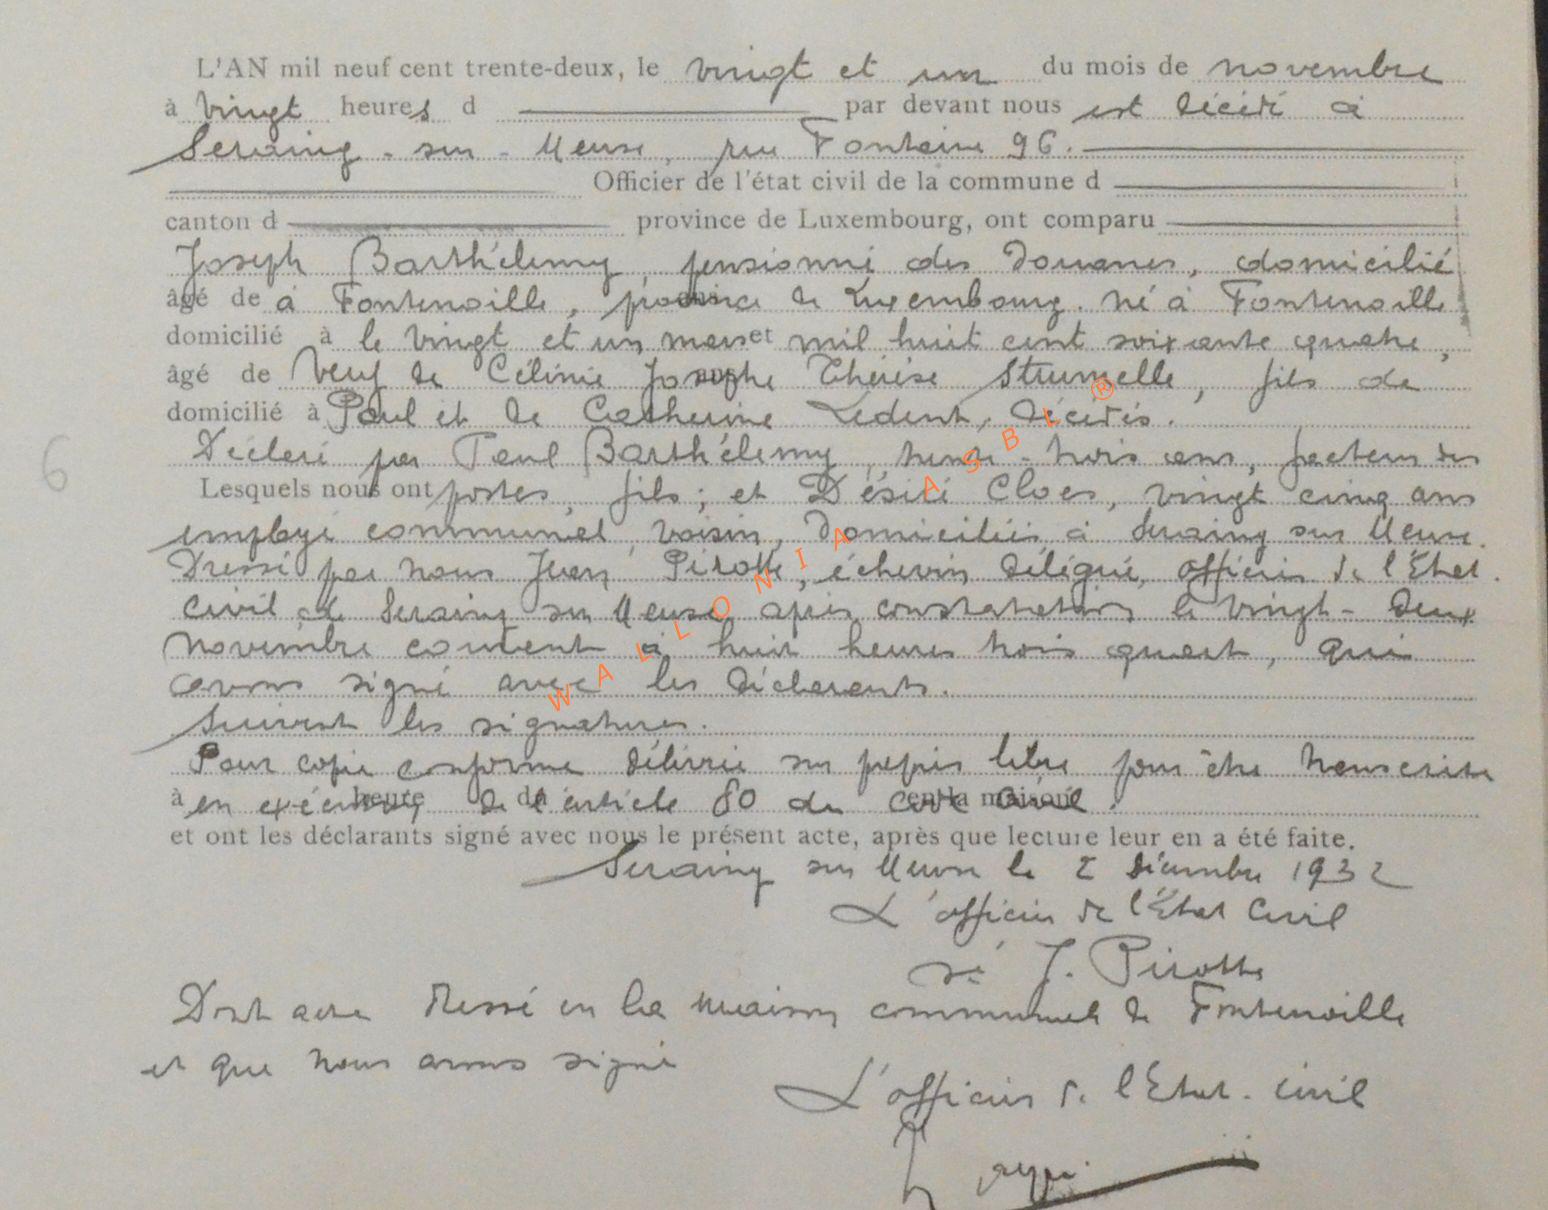 L'AN mil neuf cent trente-deux, le vingt et un du mois de novembre
à vingt heures d par devant nous est décédé à
Seraing - sur - Meuse, rue Fontaine 96.
Officier de l'état civil de la commune d
canton d province de Luxembourg, ont comparu
Joseph Barthélemy, pensionné des Douanes, domicilié
âgé de à Fontenoille, province de Luxembourg. né à Fontenoille
domicilié à le vingt et un mars et mil huit cent soixante quatre,
âgé de Veuf de Célinie Josephe Thérèse, fils de
domicilié à Paul et de Catherine Ledent, décédés.
Déclaré par Paul Barthélemy, trente-trois ans, facteur des
Lesquels nous ont postes, fils; et Désiré Cloes, vingt cinq ans
employé communal, voisin, domiciliés à Seraing sur Meuse.
Dressé par nous Jean Pirotte, échevin délégué, officier de l'Etat
civil de Seraing sur Meuse après constatation le vingt-deux
novembre courant à huit heures trois quart, qui
avons signé avec les déclarants.
Suivent les signatures.
Pour copie conforme délivrée sur papier libre pour être transcrite
à en heure de de l'article 80 du code civil.
et ont les déclarants signé avec nous le présent acte, après que lecture leur en a été faite.
Seraing sur Meuse le 2 décembre 1932
L'officier de l'Etat Civil
sé J. Pirotte
Dont acte dressé en la maison communale de Fontenoille
et que nous avons signé
L'officier de l'Etat-civil
WALLONIA ASBL ®
6